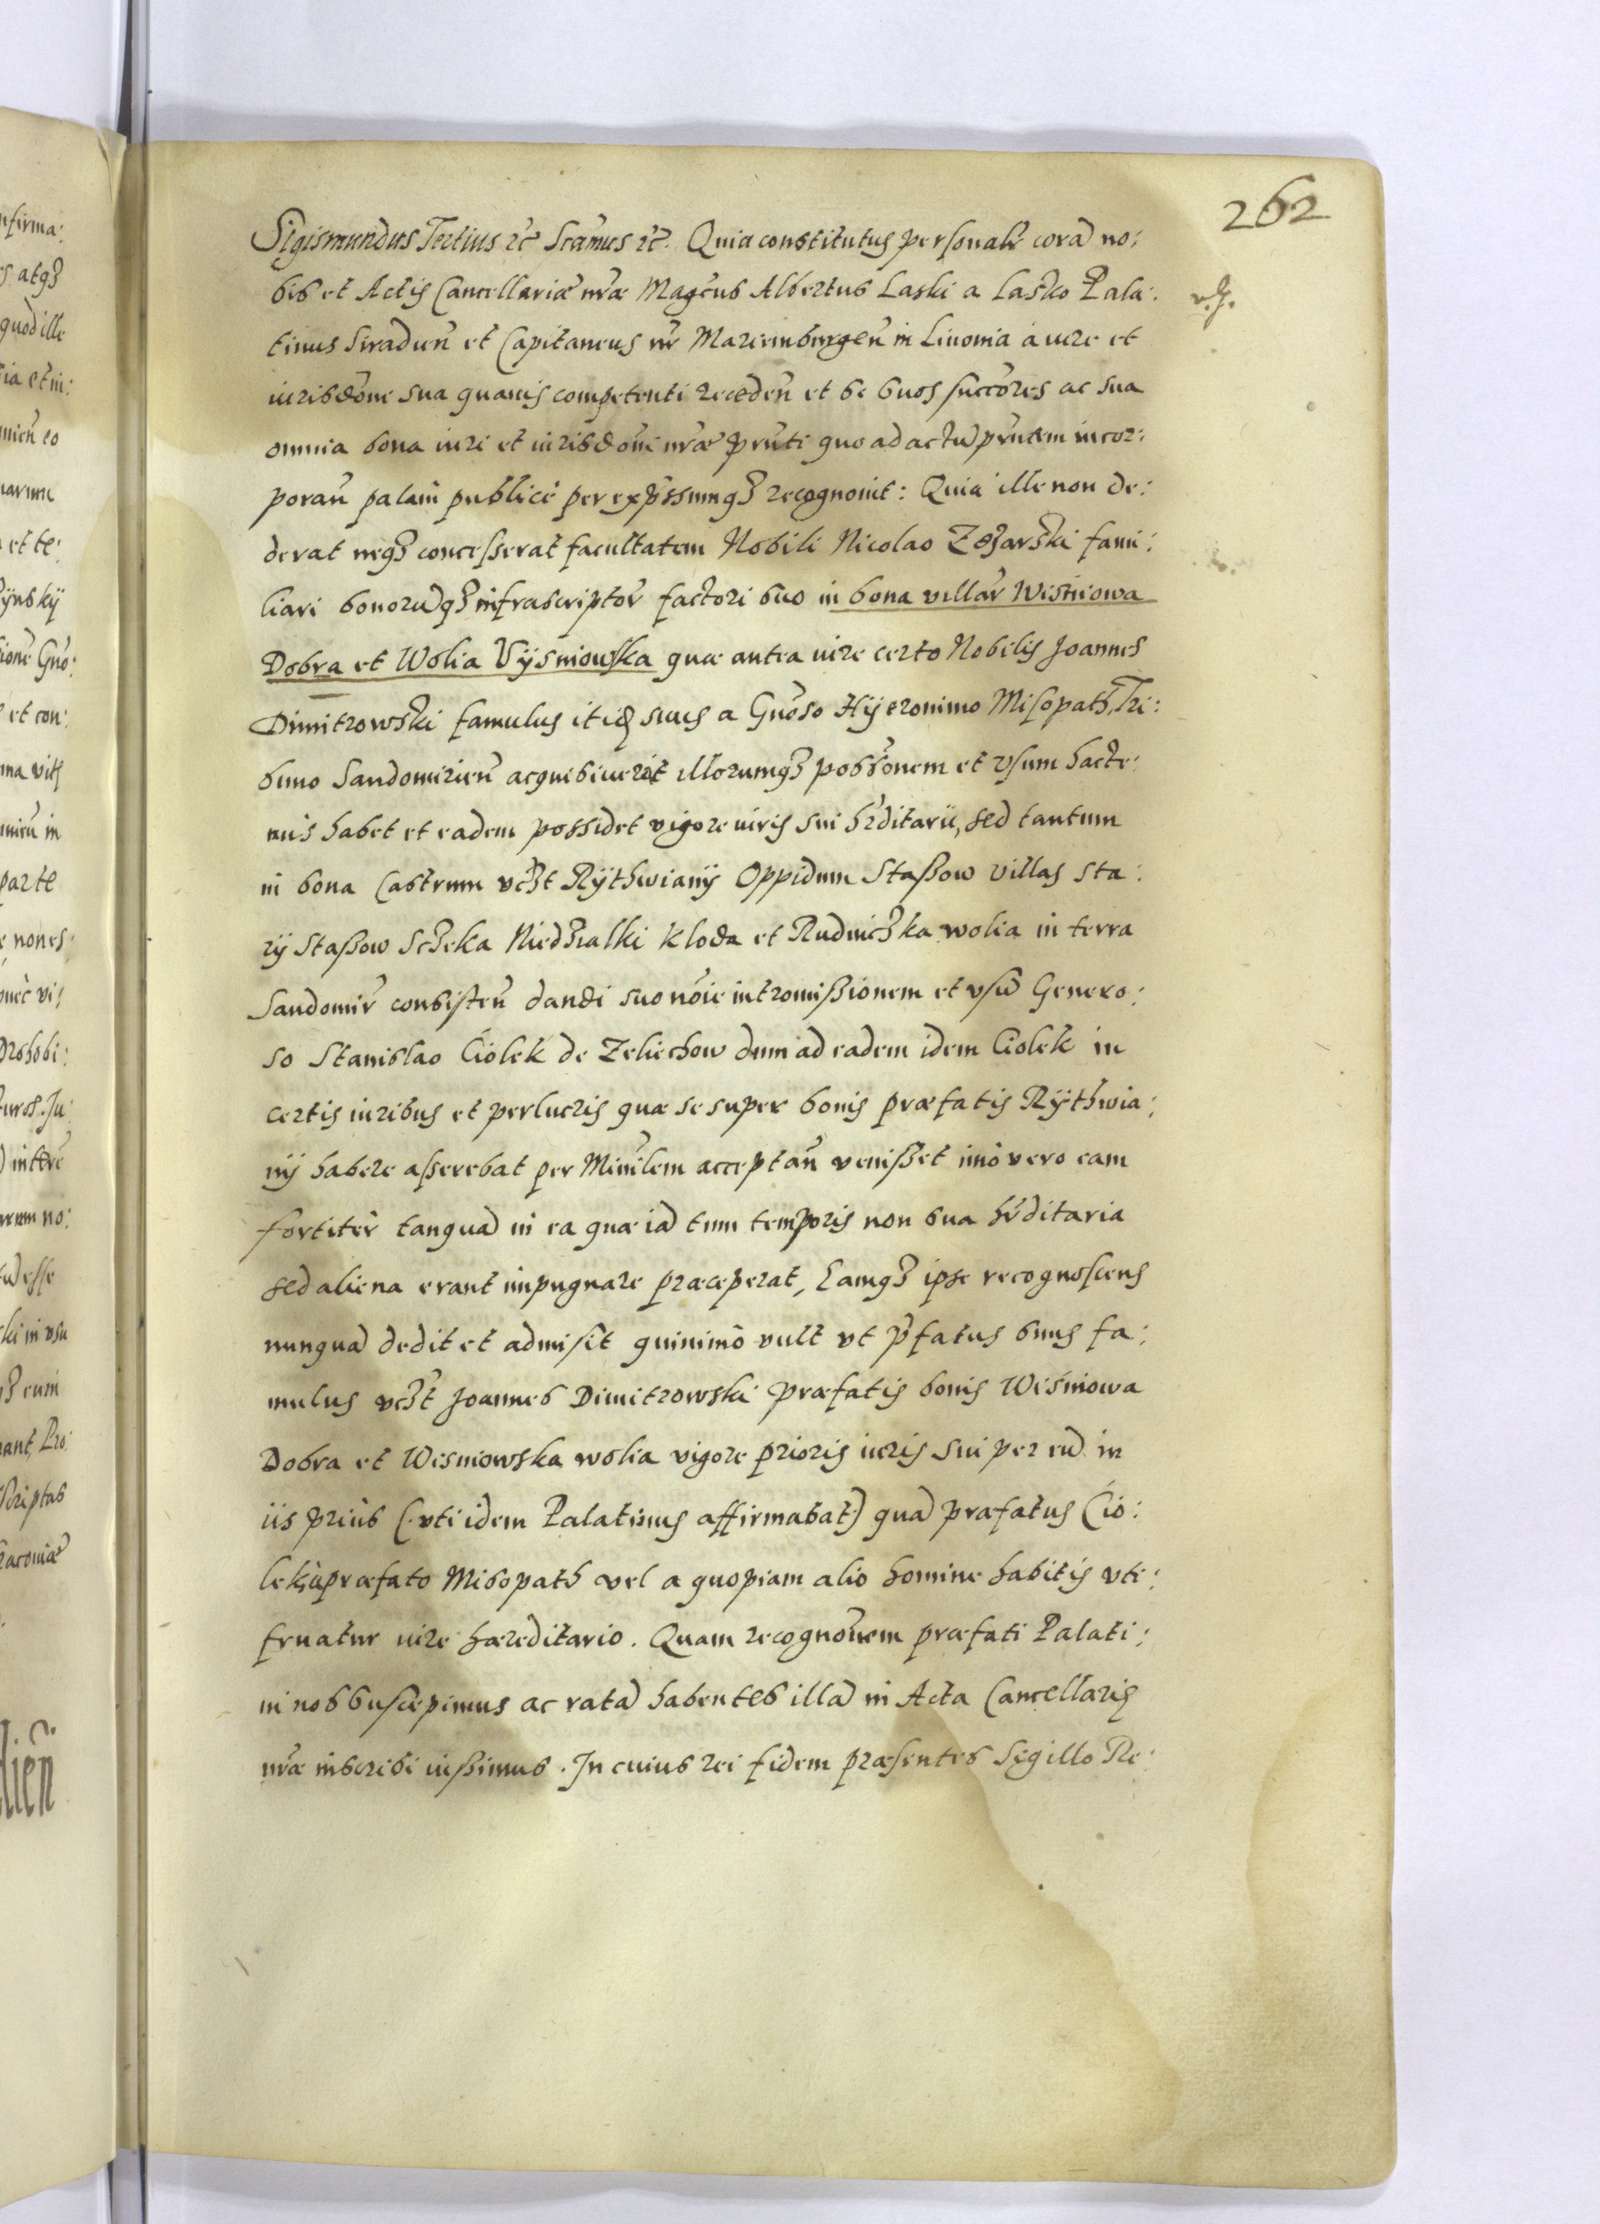 262
Sigismundus Tertius rc̃ Scamus rc̃. Quia constitutus personalr̃ corã no:
bis et Actis Cancellariæ nr̃æ Magc̃us Albertus Laski a Lasko Pala:
tinus Siradien̄ et Capitaneus nr̃ Marienburgen̄ in Livonia a iure et
iurisdõne sua quavis competenti receden̄ et se suos succõres ac sua
omnia bona iuri et iurisdõni nr̃æ pr̃nti quo ad actũ pr̃ntem incor:
poran̄ palam publicè per exp̃ssumqz recognovit: Quia ille non de:
derat neqz concesserat facultatem Nobili Nicolao Zezarski fami:
liari bonorũqz infrascriptor̃ factori suo in bona villar̃ Wisniowa
Dobra et Wolia Vÿsniowska quæ antea iure certo Nobilis Joannes
Dimitrowski famulus itid suus a Gnõso Hÿeronimo Misopath Tri:
buno Sandomirien̄ acquisiverit illorumqz possõnem et usum hacte:
nus habet et eadem possidet vigore iuris sui hr̃ditarii, sed tantum
in bona Castrum vczt Rÿthwianÿ Oppidum Stassow villas Sta:
rÿ Stassow Sczeka Niedzialki Kloda et Rudniczka wolia in terra
Sandomir̃ consisten̄ dandi suo nõie intromissionem et usũ Genero:
so Stanislao Ciolek de Zeliechow dum ad eadem idem Ciolek in
certis iuribus et perlucris quæ se super bonis præfatis Rÿthwia:
nÿ habere asserebat per Minr̃lem acceptan̄ venisset imò vero eam
fortitèr tanquã in ea quæ iã tum temporis non sua hr̃ditaria
sed aliena erant impugnare præceperat, Eamqz ipse recognoscens
nunquã dedit et admisit quinimò vult vt p̃fatus suus fa:
mulus vczt Joannes Dimitrowski præfatis bonis Wisniowa
Dobra et Wisniowska wolia vigore prioris iuris sui per eũ in
iis priùs (vti idem Palatinus affirmabat) quã præfatus Cio:
lek à præfato Misopath vel a quopiam alio homine habitis vte:
fruatur iure hæreditario. Quam recognõnem præfati Palati:
ni nos suscepimus ac ratã habentes illã in Acta Cancellariæ
nr̃æ inscribi iussimus. In cuius rei fidem præsentes Sigillo Re: